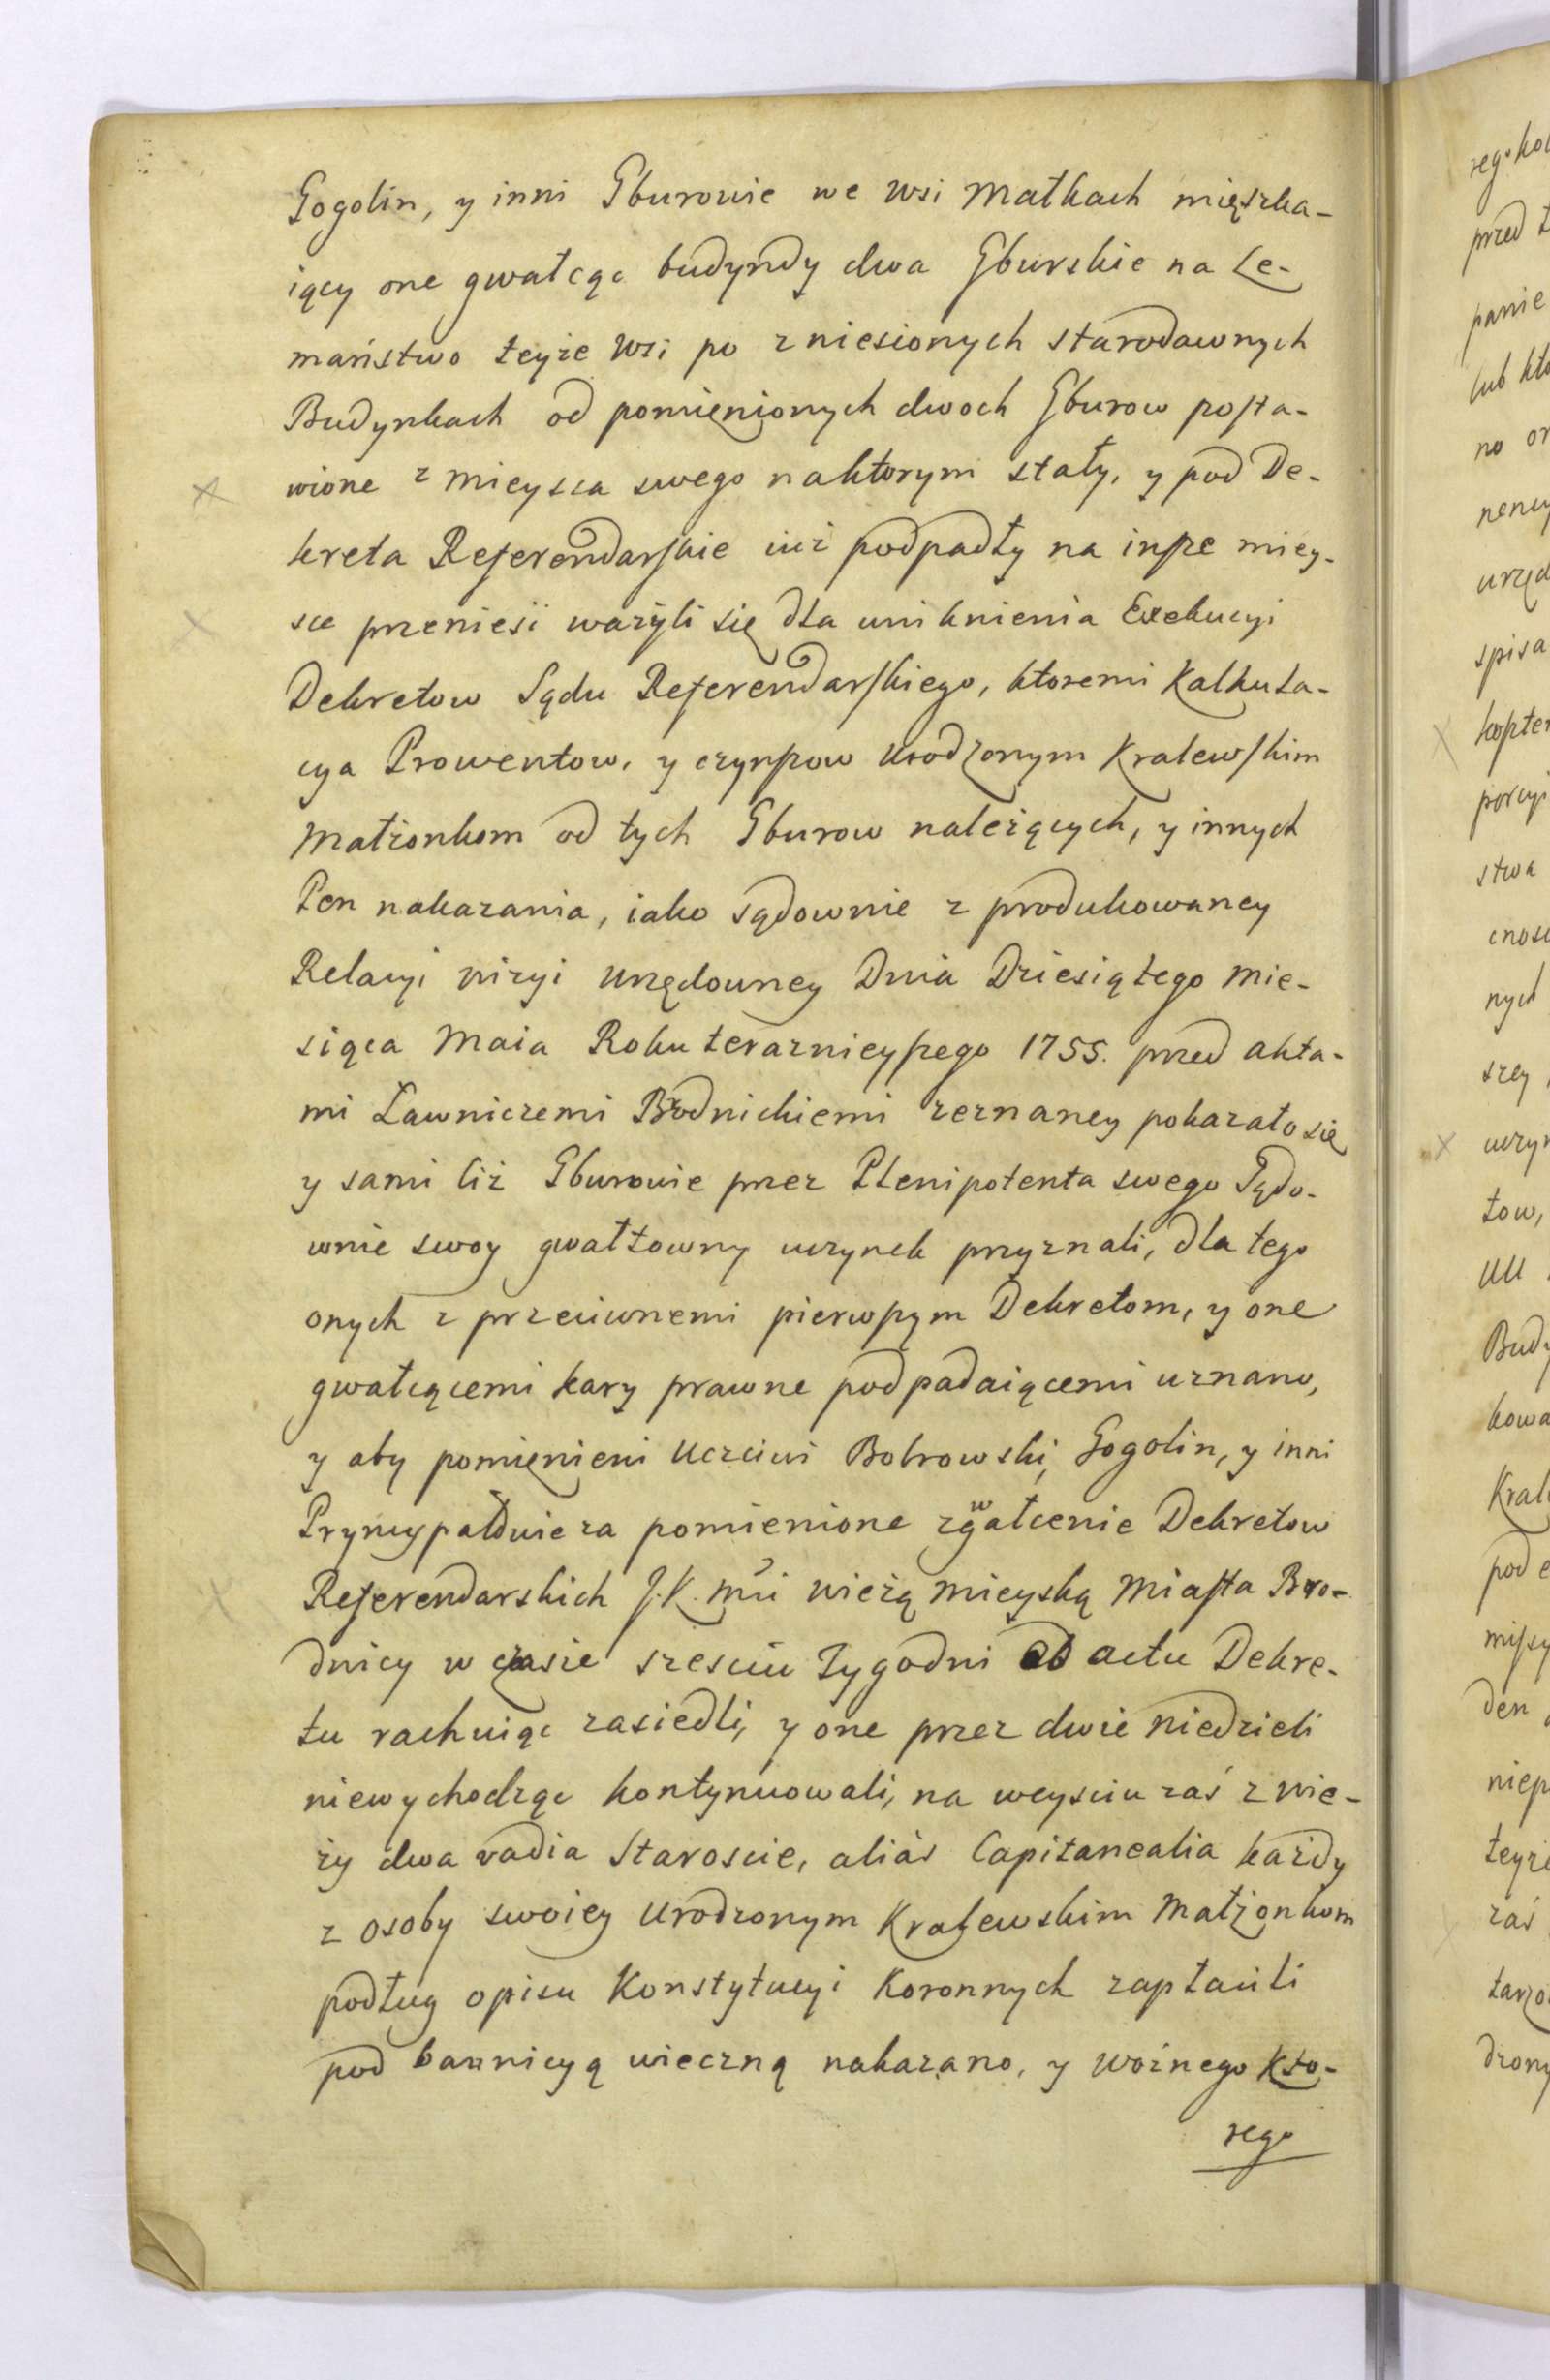 Gogolin, y inni Gburowie we wsi Małkach mięszka-
iący one gwałcąc budyndy dwa Gburskie na Le-
maństwo teyże wsi po zniesionych starodawnych
Budynkach od pomięnionych dwoch Gburow posta-
wione z mieysca swego naktorym stały, y pod De-
kreta Referendarskie iuż podpadły na insze miey-
sce przenieść ważyli się dla uniknienia Exekucyi
Dekretow Sądu Referendarskiego, ktoremi Kalkula-
cya Prowentow, y czynszow Urodzonym Kralewskim
Małżonkom od tych Gburow należących, y innych
Pen nakazania, iako sądownie z produkowaney
Relacyi wizyi urzędowney Dnia Dziesiątego Mie-
siąca Maia Roku teraznieyszego 1755. przed akta-
mi Ławniczemi Brodnickiemi zeznaney pokazało się
y sami ciż Gburowie przez Plenipotenta swego Sądo-
wnie swoy gwałtowny uczynek przyznali, dla tego
onych z przeciwnemi pierwszym Dekretom, y one
gwałcącemi kary prawne podpadaiącemi uznano,
y aby pomięnieni Uczciwi Bobrowski, Gogolin, y inni
Pryncypałowie za pomienione zgwałcenie Dekretow
Referendarskich J.K.Mci wieżą mieyską Miasta Bro-
dnicy w czasie szesciu Tygodni ab actu Dekre-
tu rachuiąc zasiedli, y one przez dwie niedzieli
niewychodząc kontynuowali, na weysciu zaś z wie-
ży dwa vadia Staroscie, aliàs Capitanealia każdy
z osoby swoiey Urodzonym Kralewskim Małżonkom
podług opisu Konstytucyi Koronnych zapłacili
pod bannicyą wieczną nakazano, y woźnego kto-
rego